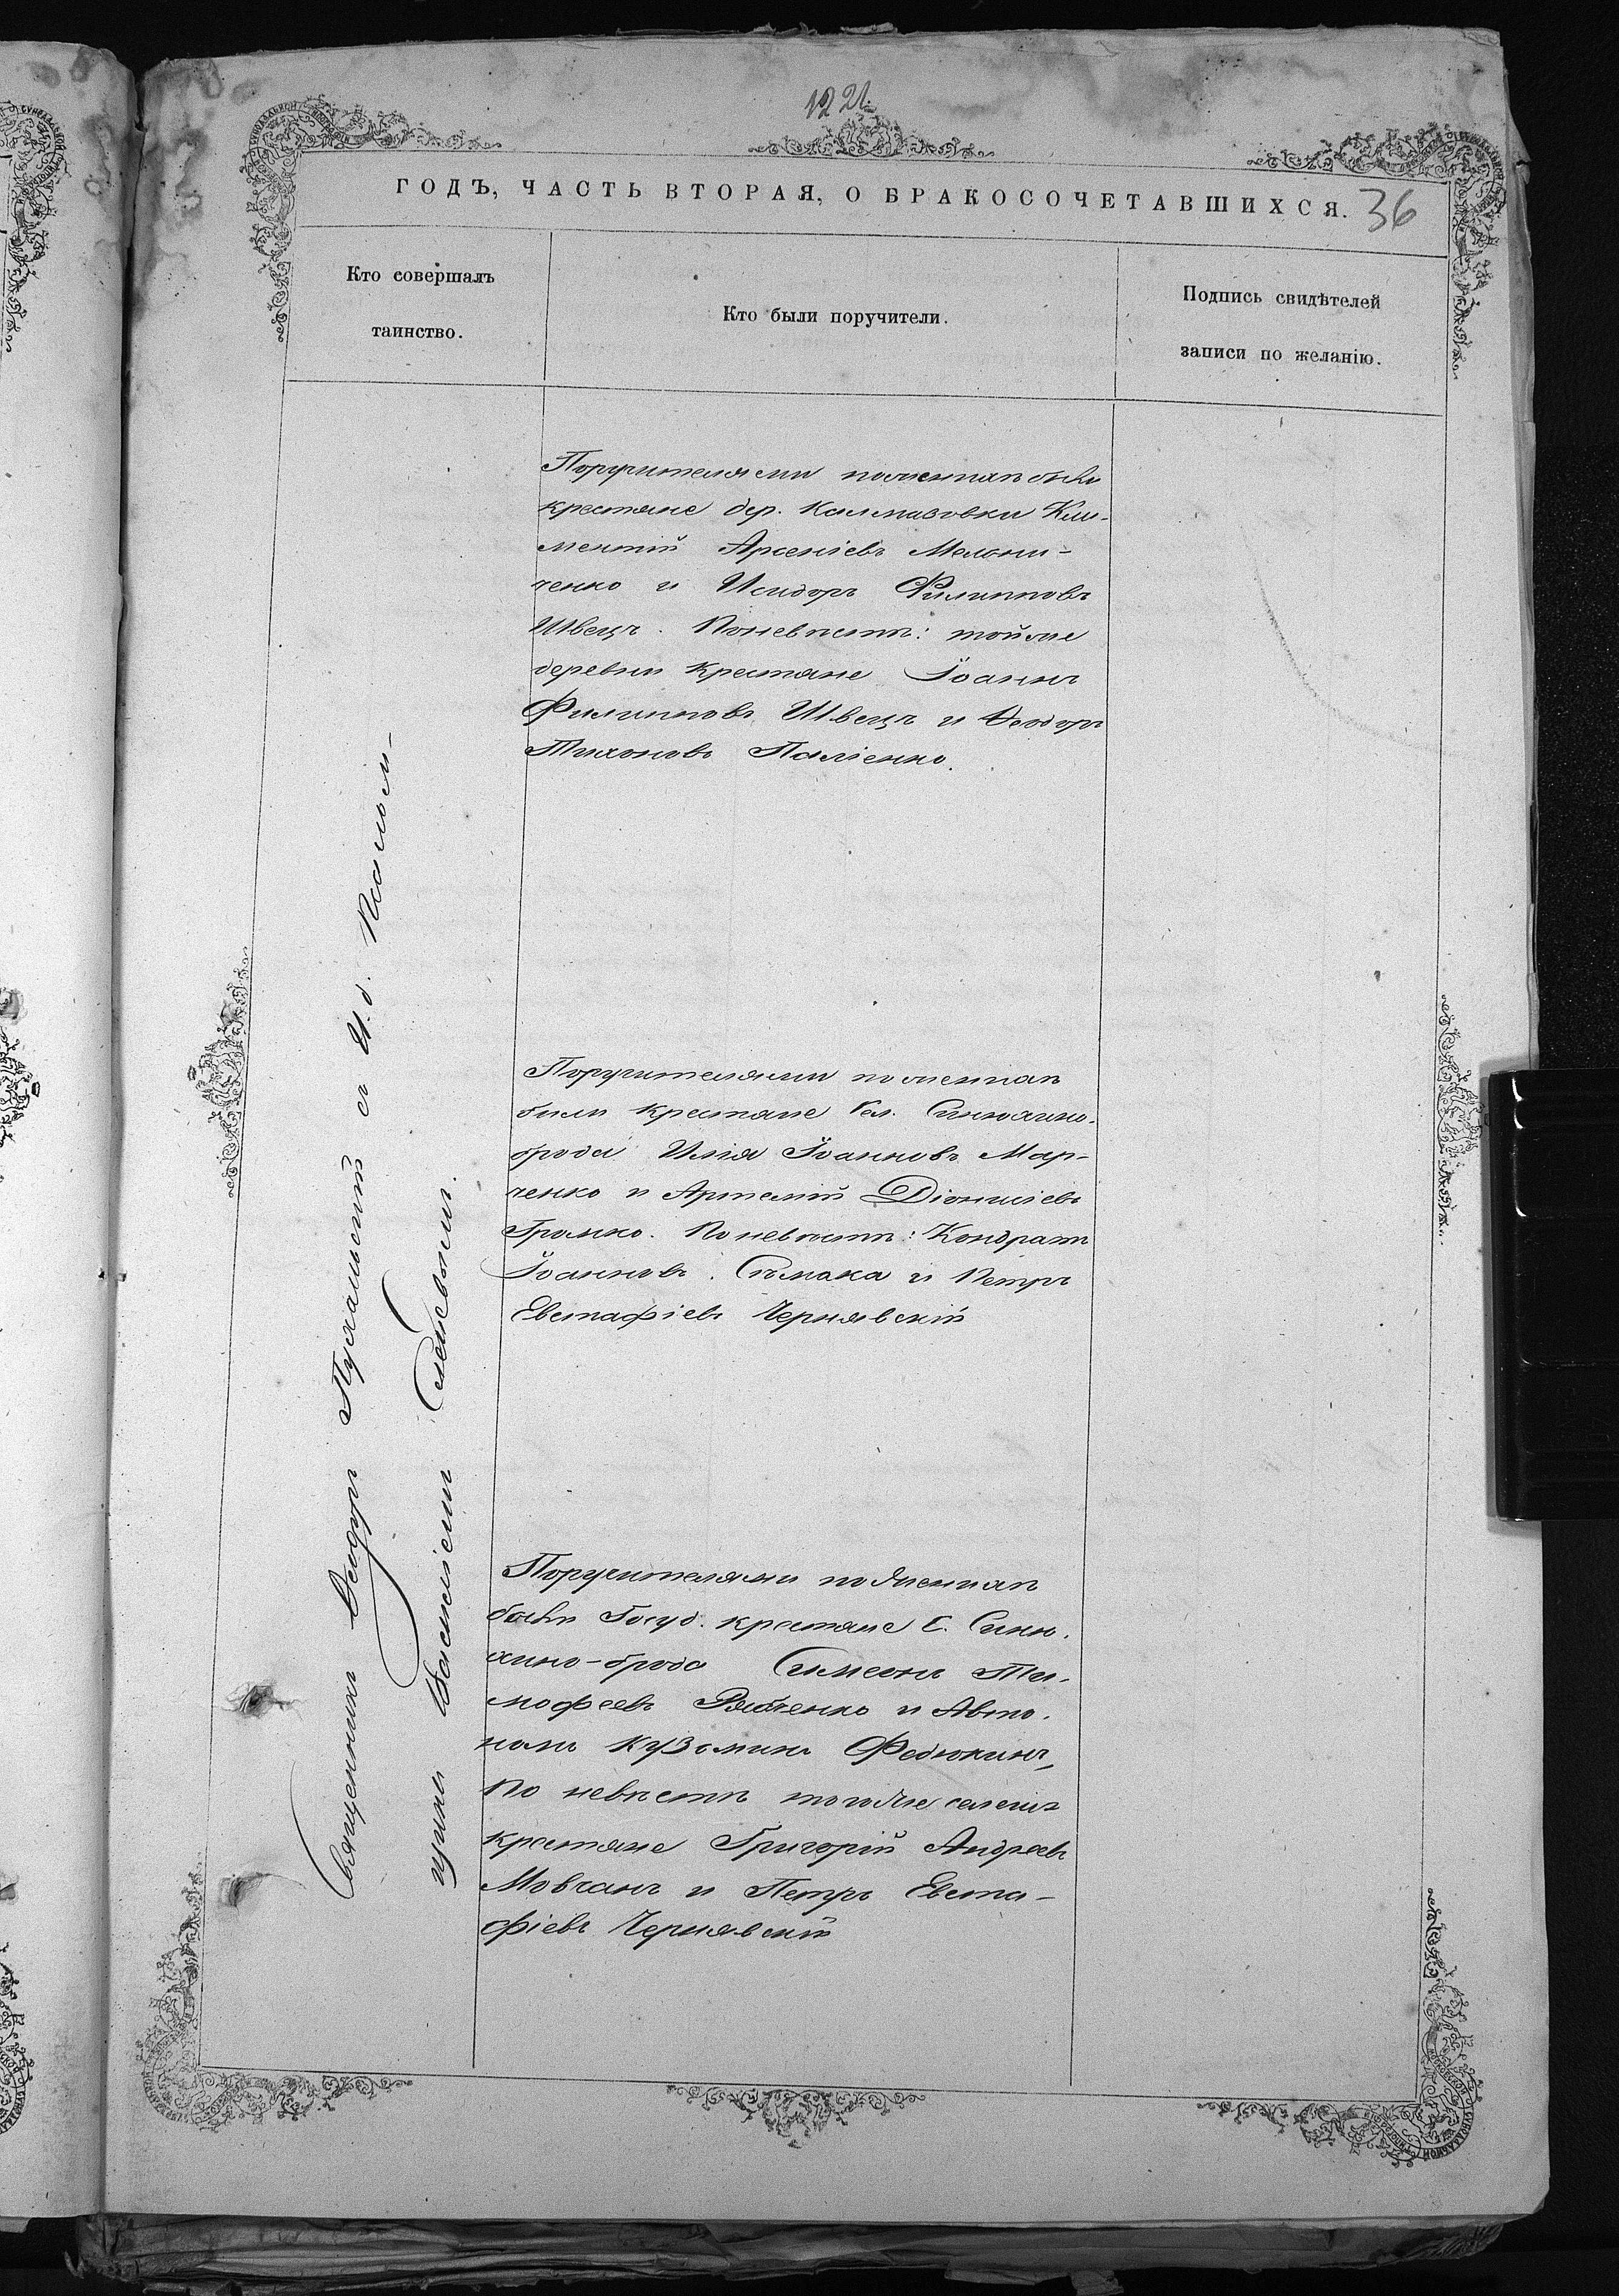 1221.
ГОДЪ, ЧАСТЬ ВТОРАЯ, О БРАКОСОЧЕТАВШИХСЯ. 36
Кто совершалъ
таинство.
Кто были поручители.
Подпись свидѣтелей
записи по желанію.
Священникъ Исидоръ и И. д. Псалом-
щика Василій
Поручителями по женихѣ были
крестяне дер. Калмазовки Кли-
ментій Арсеніевъ Мельни-
ченко и Исидоръ Филипповъ
Швецъ. По невѣстѣ: той же
деревни крестяне Іоаннъ
Филипповъ Швецъ и Ѳеодоръ
Тихоновъ Паліенко.
Поручителями по женихѣ
были крестяне Сел. Синюхино-
брода Илія Іоанновъ Мар-
ченко и Артемій Діонисіевъ
Громко. По невѣстѣ: Кондратъ
Іоанновъ и Петръ
Евстафіевъ Чернявскій
Поручителями по женихѣ
были Госуд. крестяне С. Синю-
хино-брода Симеонъ Ти-
мофеевъ Рябченко и Авто-
номъ Кузьминъ Федюкинъ,
По невѣстѣ того же селенія
крестяне Григорій Андреевъ
Мовчанъ и Петръ Евста-
фіевъ Чернявскій